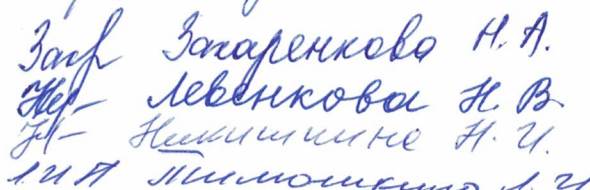 Захаренкова Н. А.
Левенкова Н. В.
Никишкина Н. И.
Тимошкина Л. И.